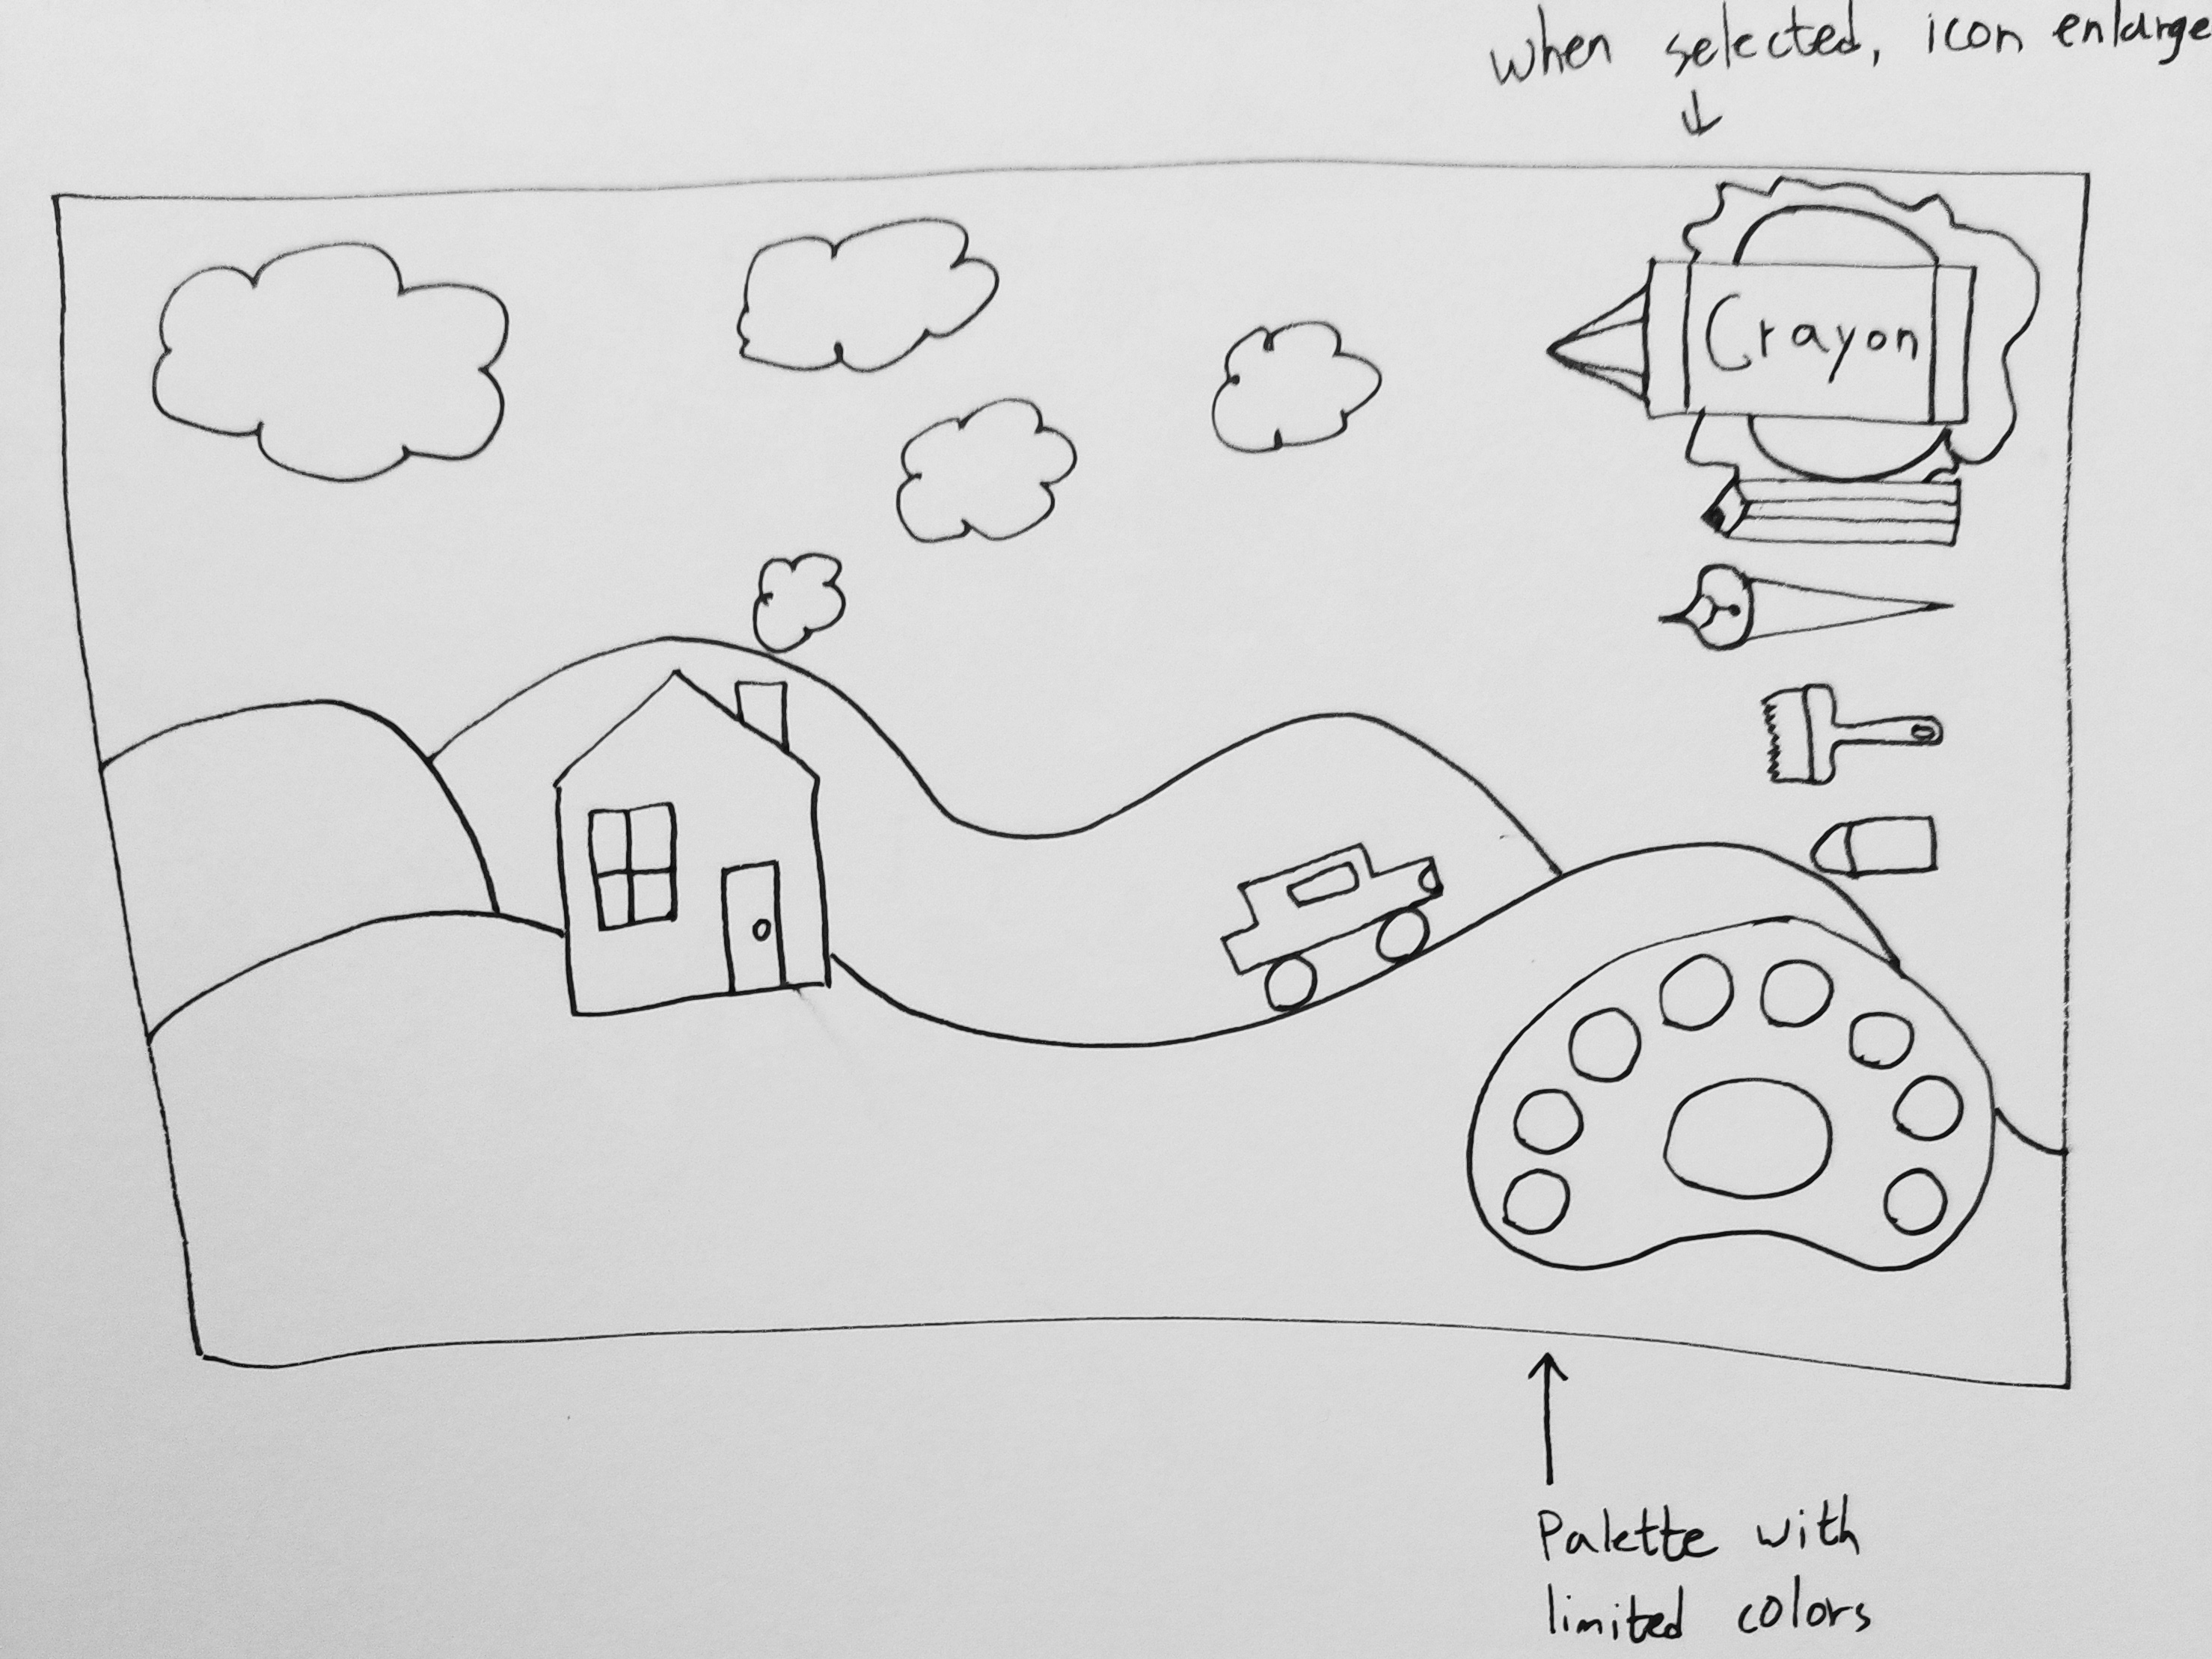 when selected, icon enlarge
Crayon
Palette with
limited colors